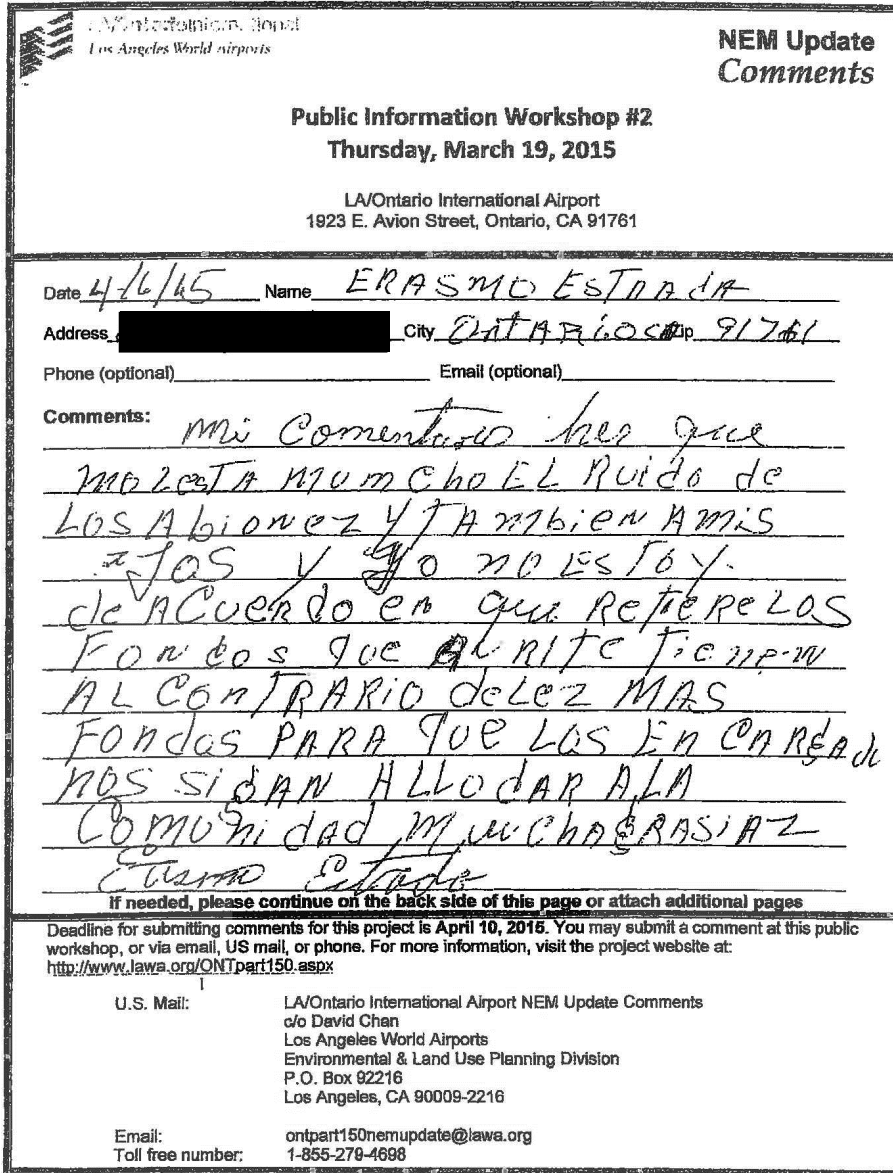 Los Angeles World Airports
NEM Update
Comments
Public Information Workshop #2
Thursday, March 19, 2015
LA/Ontario International Airport
1923 E. Avion Street, Ontario, CA 91761
Date Name ERASMO ESTRAdA
Address City ONTARIO CA 91761
Phone (optional) Email (optional)
Comments:
Mi Comentario hes que
MOLESTA MUmCHO EL RUido de
LOS AbioNez Y TAmbieN AMiS
Y YO NO ESTOY.
de ACUerdo en que RetiERE LOS
FONdOS QUE TieNeN
AL CONTRARiO deLez MAS
FONdOS PARA QUE LOS
ALLOdAR A LA
COMUNidAd MUuCHAGRASiAZ
If needed, please continue on the back side of this page or attach additional pages
Deadline for submitting comments for this project is April 10, 2015. You may submit a comment at this public
workshop, or via email, US mail, or phone. For more information, visit the project website at:
http://www.lawa.org/ONTpart150.aspx
U.S. Mail: LA/Ontario International Airport NEM Update Comments
c/o David Chan
Los Angeles World Airports
Environmental & Land Use Planning Division
P.O. Box 92216
Los Angeles, CA 90009-2216
Email: ontpart150nemupdate@lawa.org
Toll free number: 1-855-279-4698